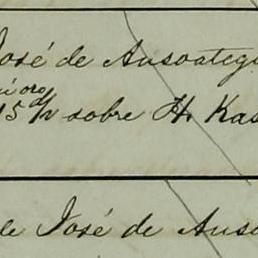 José de Ausoategu
15 % sobre H. Kas
de José de Auso